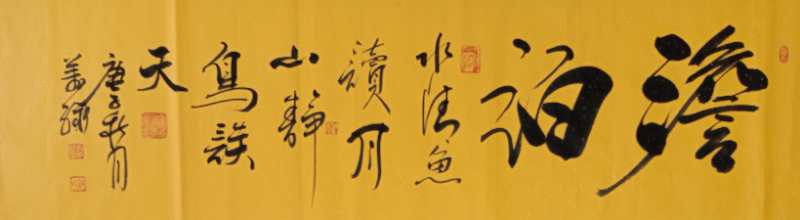 澹泊
水清魚
讀月
山靜
鳥談
天
庚子秋月